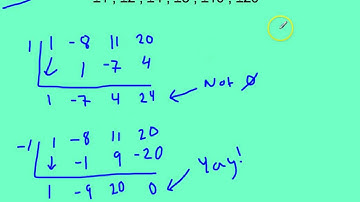 1 | 1 -8 11 20
1 -7 4
1 -7 4 24 ← Not 0
-1 | 1 -8 11 20
-1 9 -20
1 -9 20 0 ← Yay!